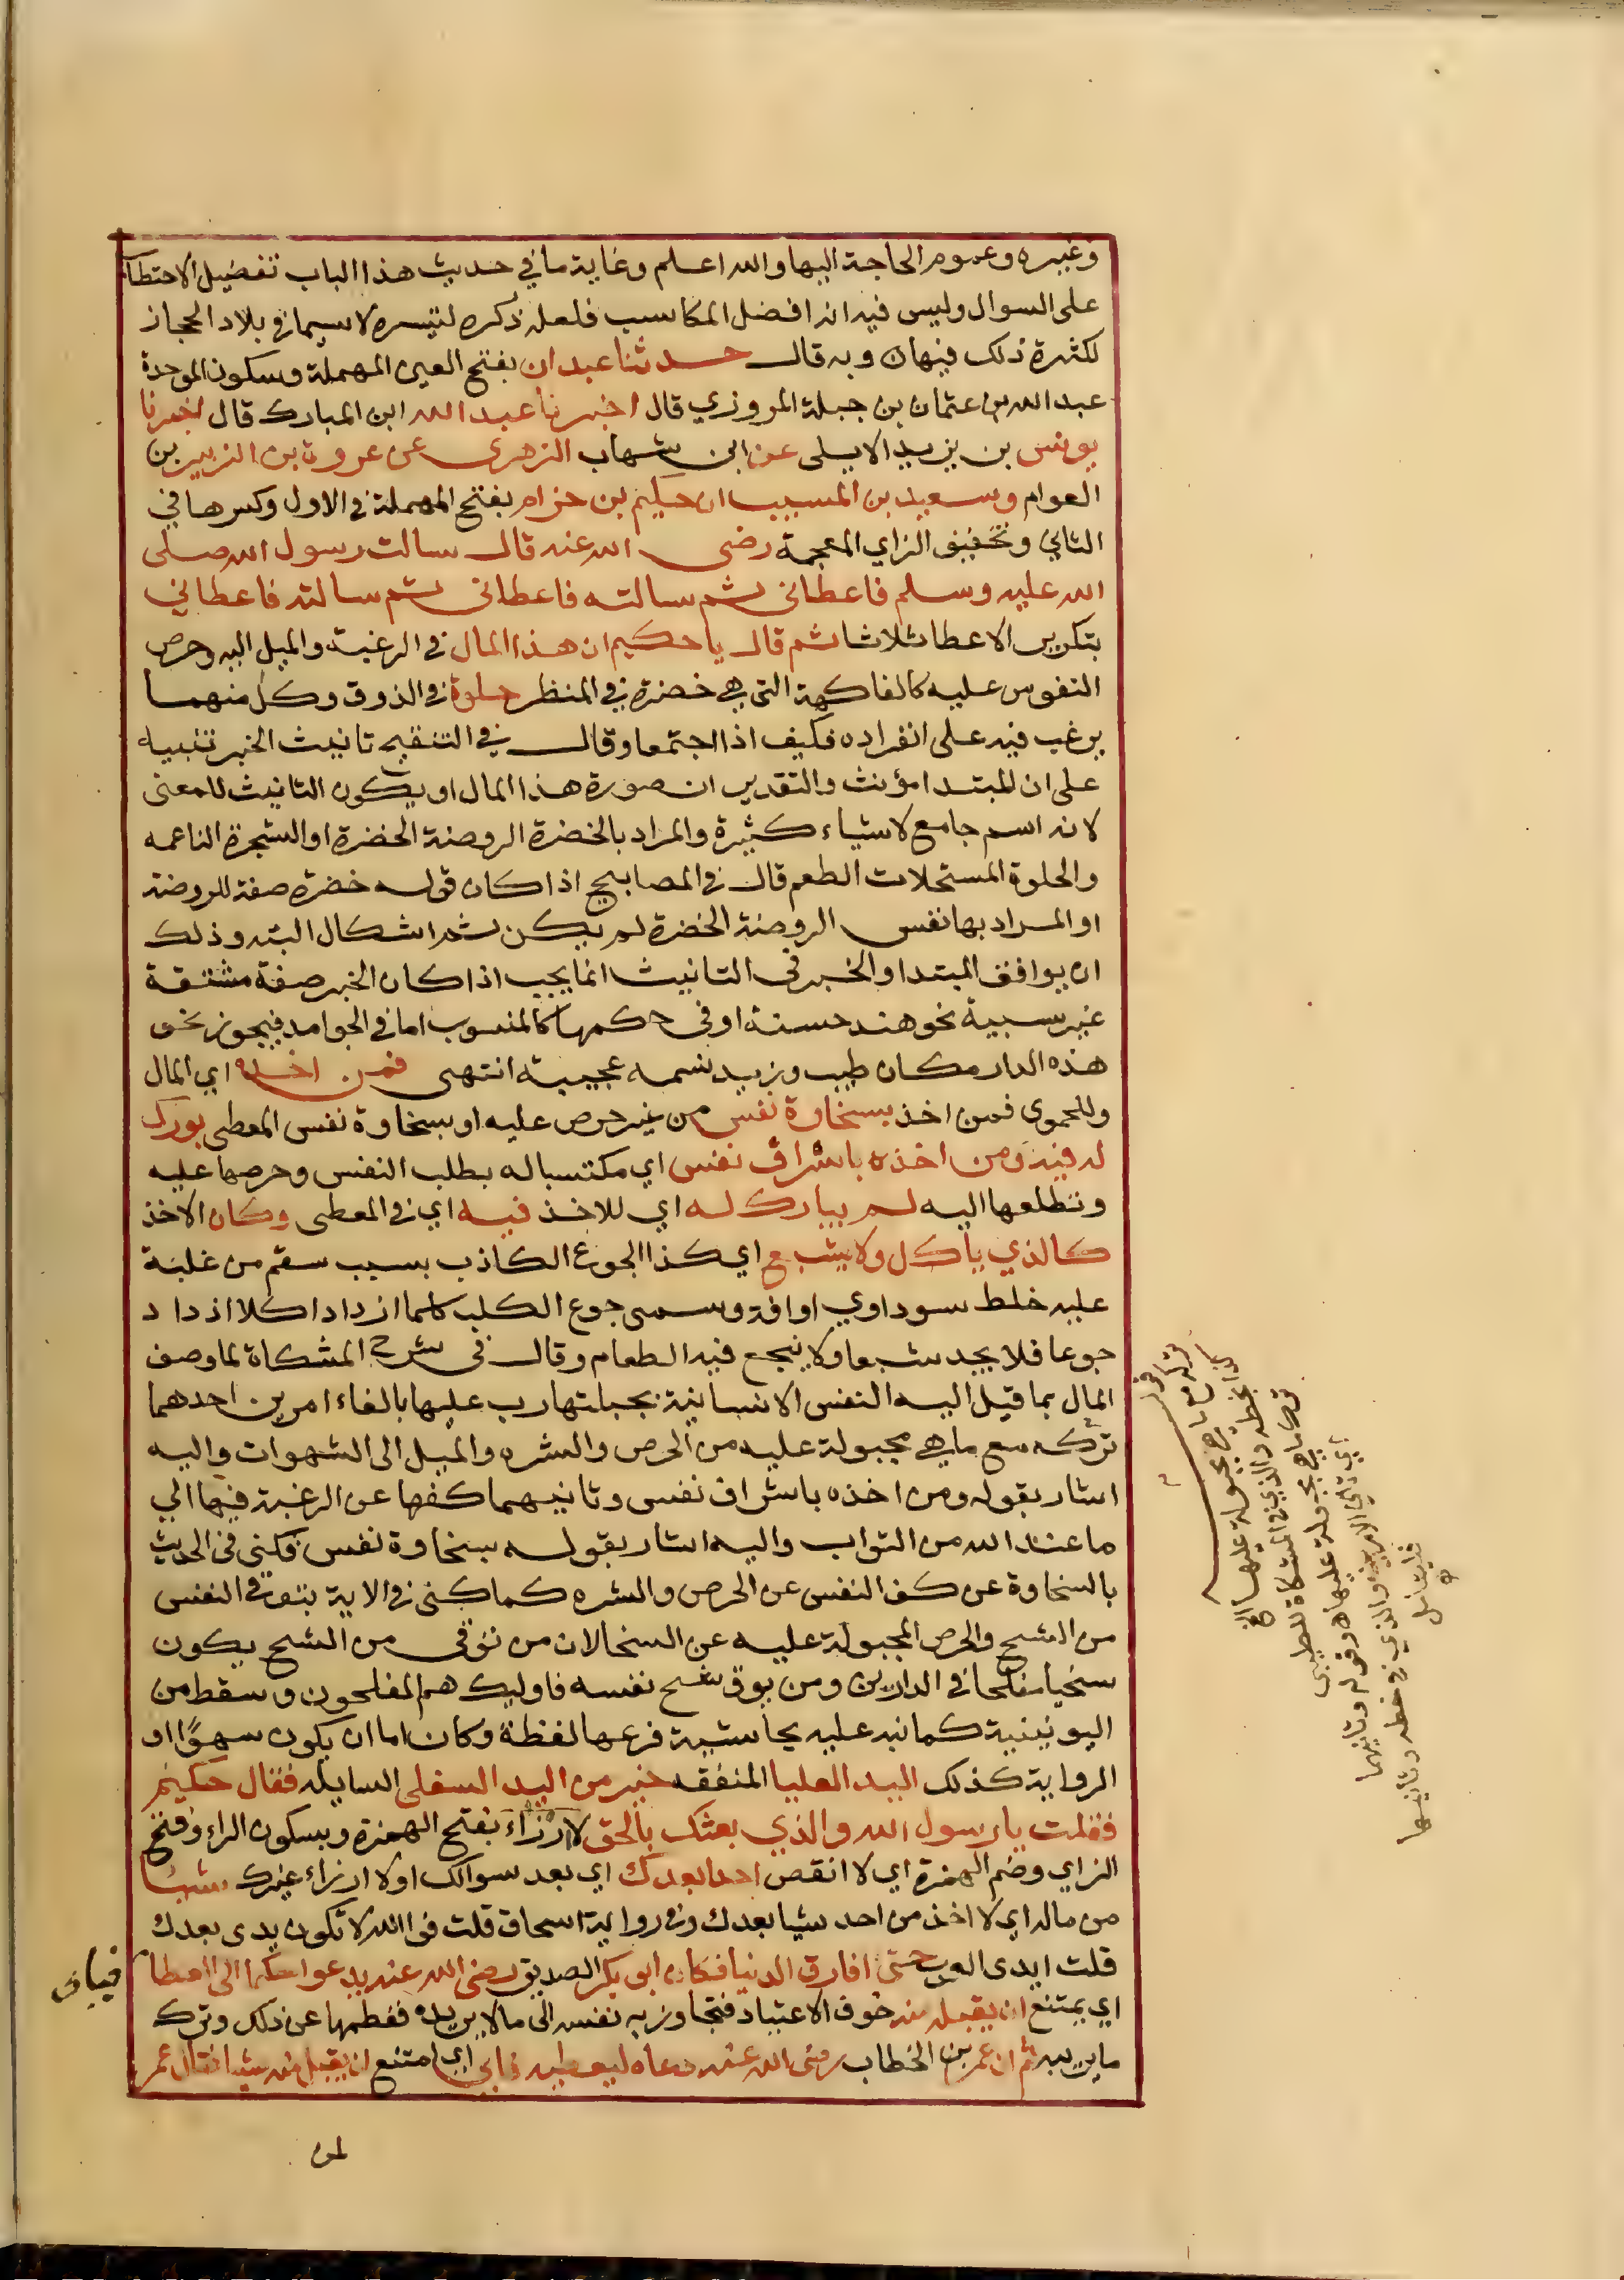 وغيره وعموم الحاجة اليها والله اعلم وغاية ما في حديث هذا الباب تفضيل الاحتطاب
على السوال وليس فيه انه افضل المكاسب فلعله ذكره لتيسره لاسيما في بلاد الحجاز
لكثرة ذلك فيها ه وبه قال حدثنا عبدان بفتح العين المهملة وسكون الموحدة
عبد الله بن عثمان بن جبلة المروزي قال اخبرنا عبد الله ابن المبارك قال اخبرنا
يونس بن يزيد الايلى عن ابن شهاب الزهرى عن عروة بن الزبير بن
العوام وسعيد بن المسيب ان حكيم بن حزام بفتح المهملة في الاول وكسرها في
الثاني وتخفيف الزاي المعجمة رضى الله عنه قال سالت رسول الله صلى
الله عليه وسلم فاعطانى ثم سالته فاعطانى ثم سالته فاعطاني
بتكرير الاعطا ثلاثا ثم قال يا حكيم ان هذا المال في الرغبة والميل اليه وحرص
النفوس عليه كالفاكهة التى هي خضرة في المنظر حلوة في الذوق وكل منهما
يرغب فيه على انفراده فكيف اذا اجتمعا وقال في التنقيح تانيث الخبر تنبيه
على ان المبتدا مؤنث والتقدير ان صورة هذا المال او يكون التانيث للمعنى
لانه اسم جامع لاشياء كثيرة والمراد بالخضرة الروضة الخضرة او الشجرة الناعمه
والحلوة المستحلات الطعم قال في المصابيح اذا كان قوله خضرة صفة للروضة
او المراد بها نفس الروضة الخضرة لم يكن ثم اشكال البته وذلك
ان يوافق المبتدا والخبر فى التانيث انما يجب اذا كان الخبر صفة مشتقة
غير سببية نحو هند حسنة او فى حكمها كالمنسوب اما في الجوامد فيجوز نحو
هذه الدار مكان طيب وزيد نسمه عجيبة انتهى فمن اخذه اي المال
وللحموى فمن اخذ بسخاوة نفس من غير حرص عليه او بسخاوة نفس المعطى بورك
له فيه ومن اخذه باشراف نفس اي مكتسبا له بطلب النفس وحرصها عليه
وتطلعها اليه لم يبارك له اي للاخذ فيه اي في المعطى وكان الاخذ
كالذي يأكل ولا يشبع اي كذا الجوع الكاذب بسبب سقم من غلبة
عليه خلط سوداوي او افة وسمى جوع الكلب كلما ازداد اكلا ازداد
جوعا فلا يجد شبعا ولا ينجع فيه الطعام وقال فى شرح المشكاة لما وصف
المال بما قيل اليه النفس الانسانية بجبلتها رب عليها بالفاء امرين احدهما
تركه مع ما هي مجبولة عليه من الحرص والشره والميل الى الشهوات واليه
اشار بقوله ومن اخذه باشراف نفس وثانيهما كفها عن الرغبة فيها الي
ما عند الله من الثواب واليه اشار بقوله بسخاوة نفس فكنى فى الحديث
بالسخاوة عن كف النفس عن الحرص والشره كما كنى في الاية بتوقى النفس
من الشح والحرص المجبولة عليه عن السخا لان من توقى من الشح يكون
سخيا مفلحا في الدارين ومن يوق شح نفسه فاوليك هم المفلحون وسقط من
اليونينية كما نبه عليه بحاشية فرعها لفظة وكان اما ان يكون سهوًا او
الرواية كذلك اليد العليا المنفقه خير من اليد السفلى السايله فقال حكيم
فقلت يا رسول الله والذي بعثك بالحق لا ارزاء بفتح الهمزة وبسكون الراء وفتح
الزاي وضم الهمزة اي لا انقص احدا بعدك اي بعد سوالك او لا ارزاء غيرك شيئا
من ماله اي لا اخذ من احد شيا بعدك وفي رواية اسحاق قلت فوالله لا تكون يدى بعدك
قلت ايدى العرب حتى افارق الدنيا فكان ابو بكر الصديق رضى الله عنه يدعوا حكيما الى العطا
فيابى
اي يمتنع ان يقبله منه خوف الاعتياد فتجاوز به نفسه الى مالا يريده ففطمها عن ذلك وترك
ما يريبه ثم ان عمر بن الخطاب رضى الله عنه دعاه ليعطيه فابى اي امتنع ان يقبل منه شيا فقال عمر
قوله ما هي مجبولة عليها الخ
بخطه والذي في المشكاة للطيبى
مجبولة عليها ه وقوله وثانيهما
اي ثاني الامرين والذي في خطه وثانيها
فليتامل